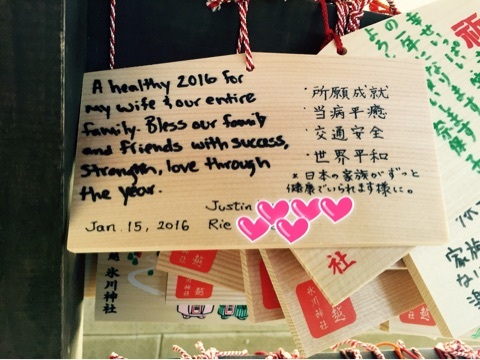 A healthy 2016 for
my wife & our entire
family. Bless our family
and friends with success,
strength, love through
the year.
Jan. 15, 2016
Justin
Rie
・所願成就
・当病平癒
・交通安全
・世界平和
※日本の家族がずっと
健康でいられます様に。
氷川神社
社
氷川神社
越